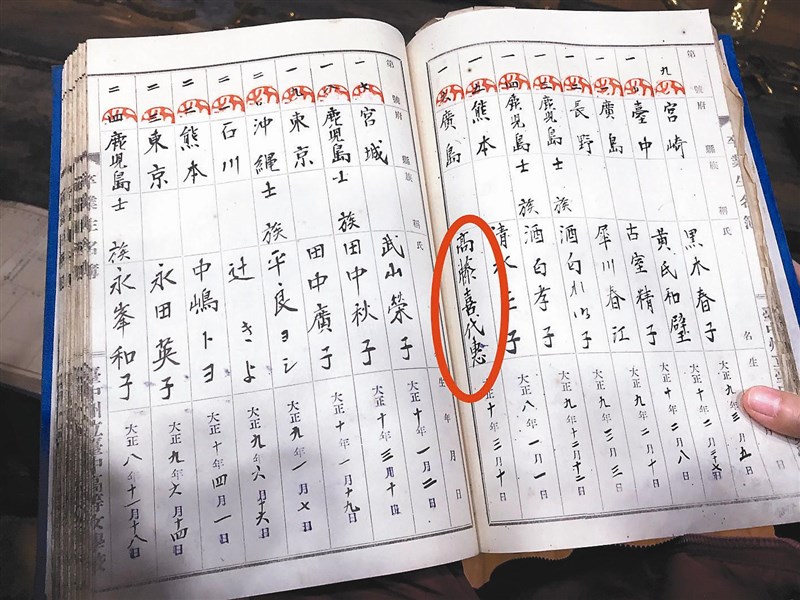 卒業生名簿
第 號 府 縣族 稱氏 名 生 年 月 日
九 宮崎 黒木春子 大正九年三月五日
臺中 黄氏和璧 大正九年二月二十七日
廣島 古室精子 大正十年二月八日
長野 犀川春江 大正九年二月十日
鹿児島士族 酒匂れい子 大正九年三月三日
鹿児島士族 酒匂孝子 大正九年十二月十二日
熊本 清水 子 大正八年一月一日
廣島 高藤喜代惠 大正十年三月十日
第 號 府 縣族 稱氏 生 年 月 日
宮城 武山榮子 大正十年一月二日
鹿児島士族 田中秋子 大正十年三月十四日
一九 東京 田中廣子 大正十年一月十九日
二〇 沖縄士族 平良ヨシ 大正九年一月七日
二一 石川 辻きよ 大正九年六月十六日
二二 熊本 中嶋トヨ 大正十年四月一日
二三 東京 永田英子 大正九年六月十四日
二四 鹿児島士族 永峯和子 大正八年十一月十八日
卒業生名簿 臺中州立臺中高等女學校